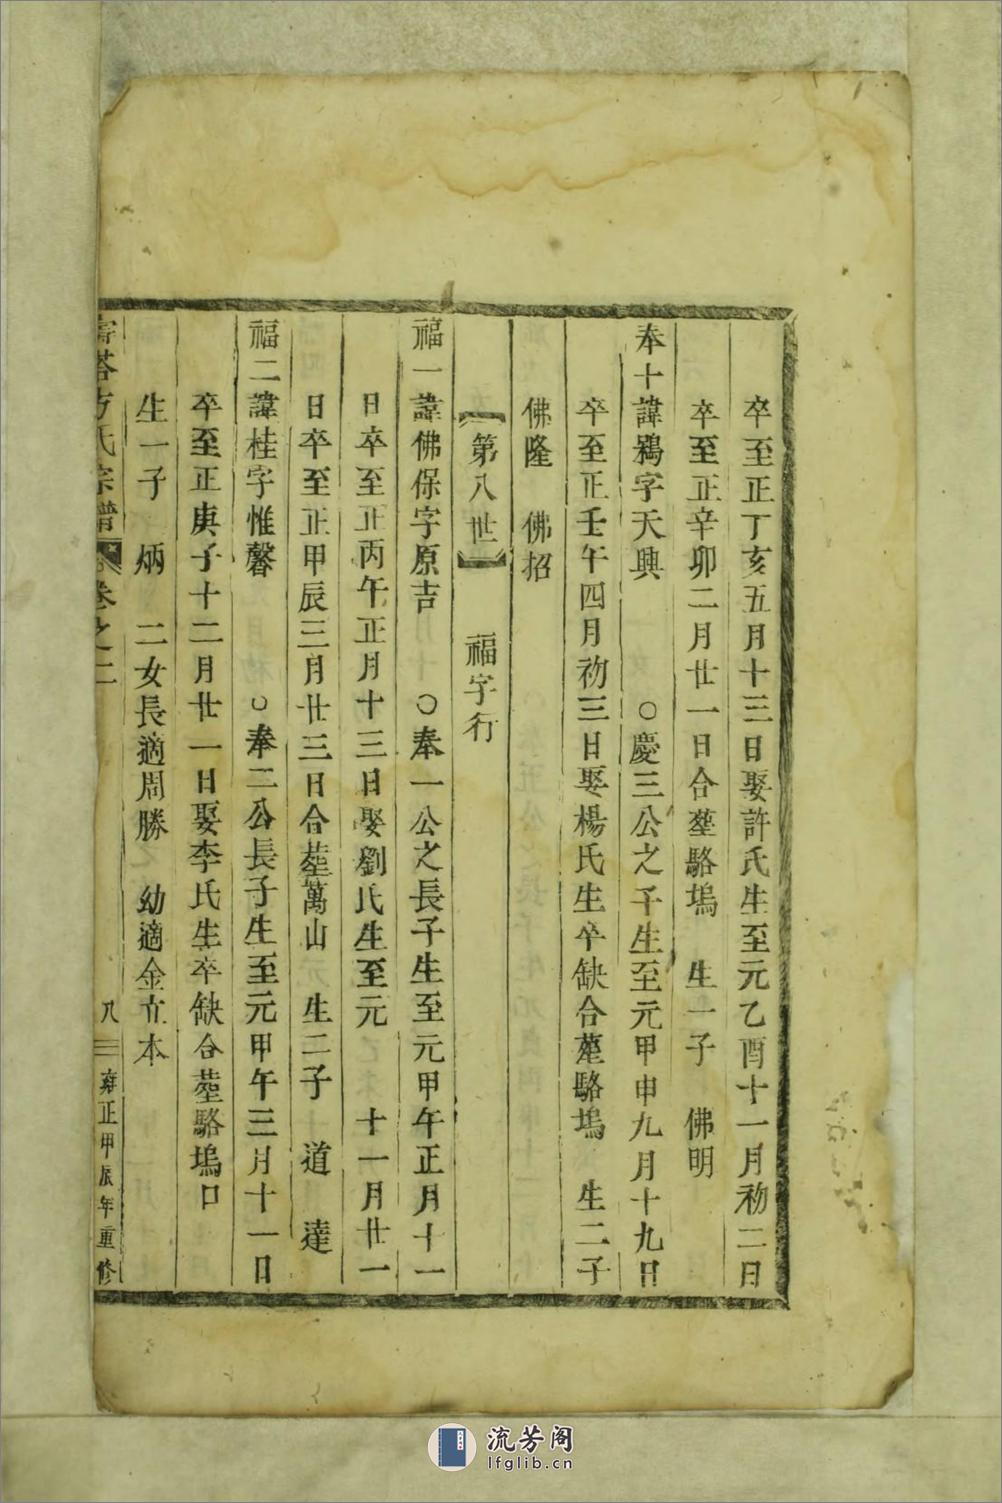 卒至正丁亥五月十三日娶許氏生至元乙酉十一月初二日
卒至正辛卯二月廿一日合塟駱塢　生一子　佛明
奉十諱鵶字天興　○慶三公之子生至元甲申九月十九日
卒至正壬午四月初三日娶楊氏生卒缺合塟駱塢　生二子
佛隆　佛招
【第八世】　福字行
福一諱佛保字原吉　○奉一公之長子生至元甲午正月十一
日卒至正丙午正月十三日娶劉氏生至元　十一月廿一
日卒至正甲辰三月廿三日合塟萬山　生二子　道　達
福二諱桂字惟馨　○奉二公長子生至元甲午三月十一日
卒至正庚子十二月廿一日娶李氏生卒缺合塟駱塢口
生一子　炳　二女長適周勝　幼適金立本
塔方氏宗譜　卷之二　八　雍正甲辰年重修
流芳阁
lfglib.cn